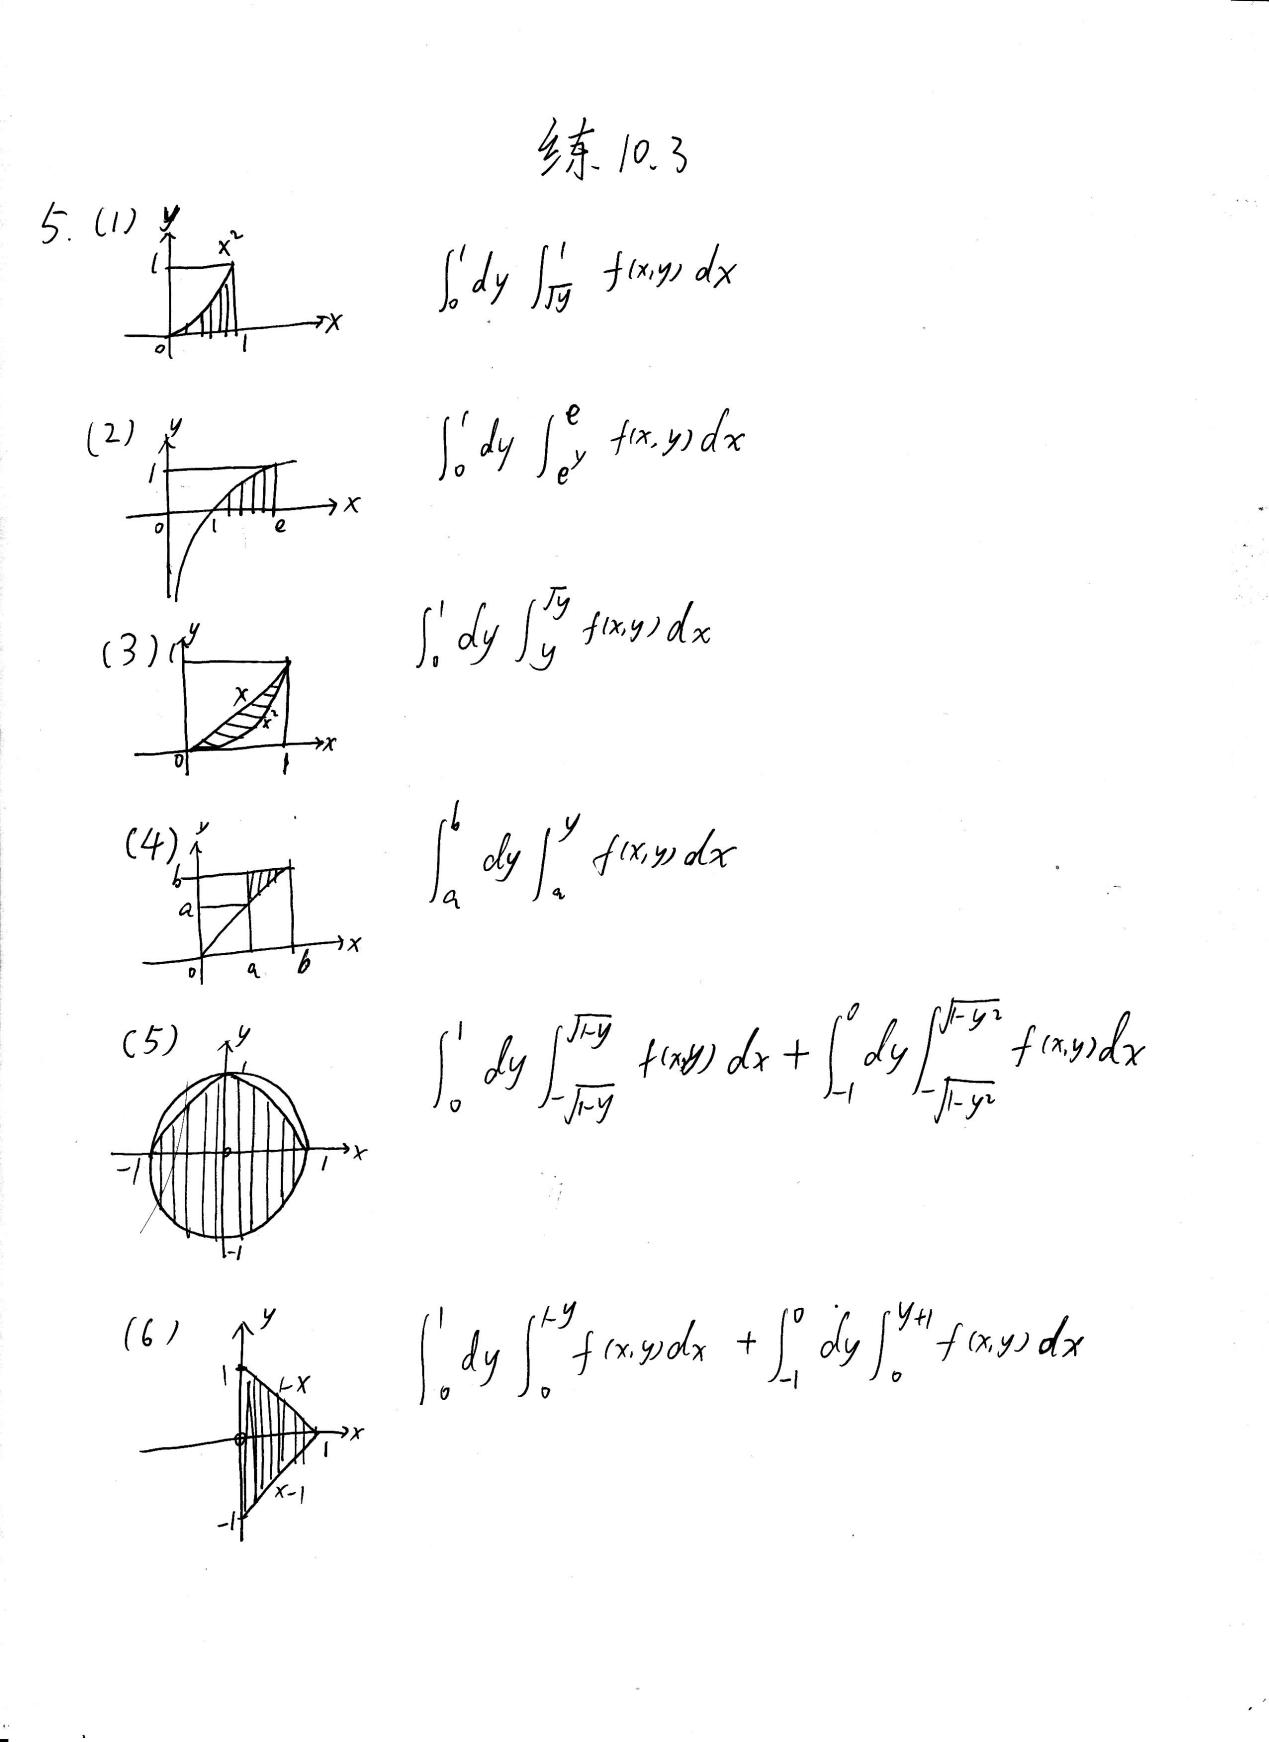 练 10.3
5. (1) y
x²
1
x
0 1
∫₀¹ dy ∫_{√y}^{1} f(x,y) dx
(2) y
1
x
0 1 e
∫₀¹ dy ∫_{e^y}^{e} f(x,y) dx
(3) y
1
x
x²
x
0 1
∫₀¹ dy ∫_{y}^{√y} f(x,y) dx
(4) y
b
a
x
0 a b
∫_{a}^{b} dy ∫_{a}^{y} f(x,y) dx
(5) y
1
-1 0 1 x
-1
∫₀¹ dy ∫_{-√(1-y)}^{√(1-y)} f(x,y) dx + ∫_{-1}^{0} dy ∫_{-√(1-y²)}^{√(1-y²)} f(x,y) dx
(6) y
1
1-x
0 1 x
x-1
-1
∫₀¹ dy ∫_{0}^{1-y} f(x,y) dx + ∫_{-1}^{0} dy ∫_{0}^{y+1} f(x,y) dx